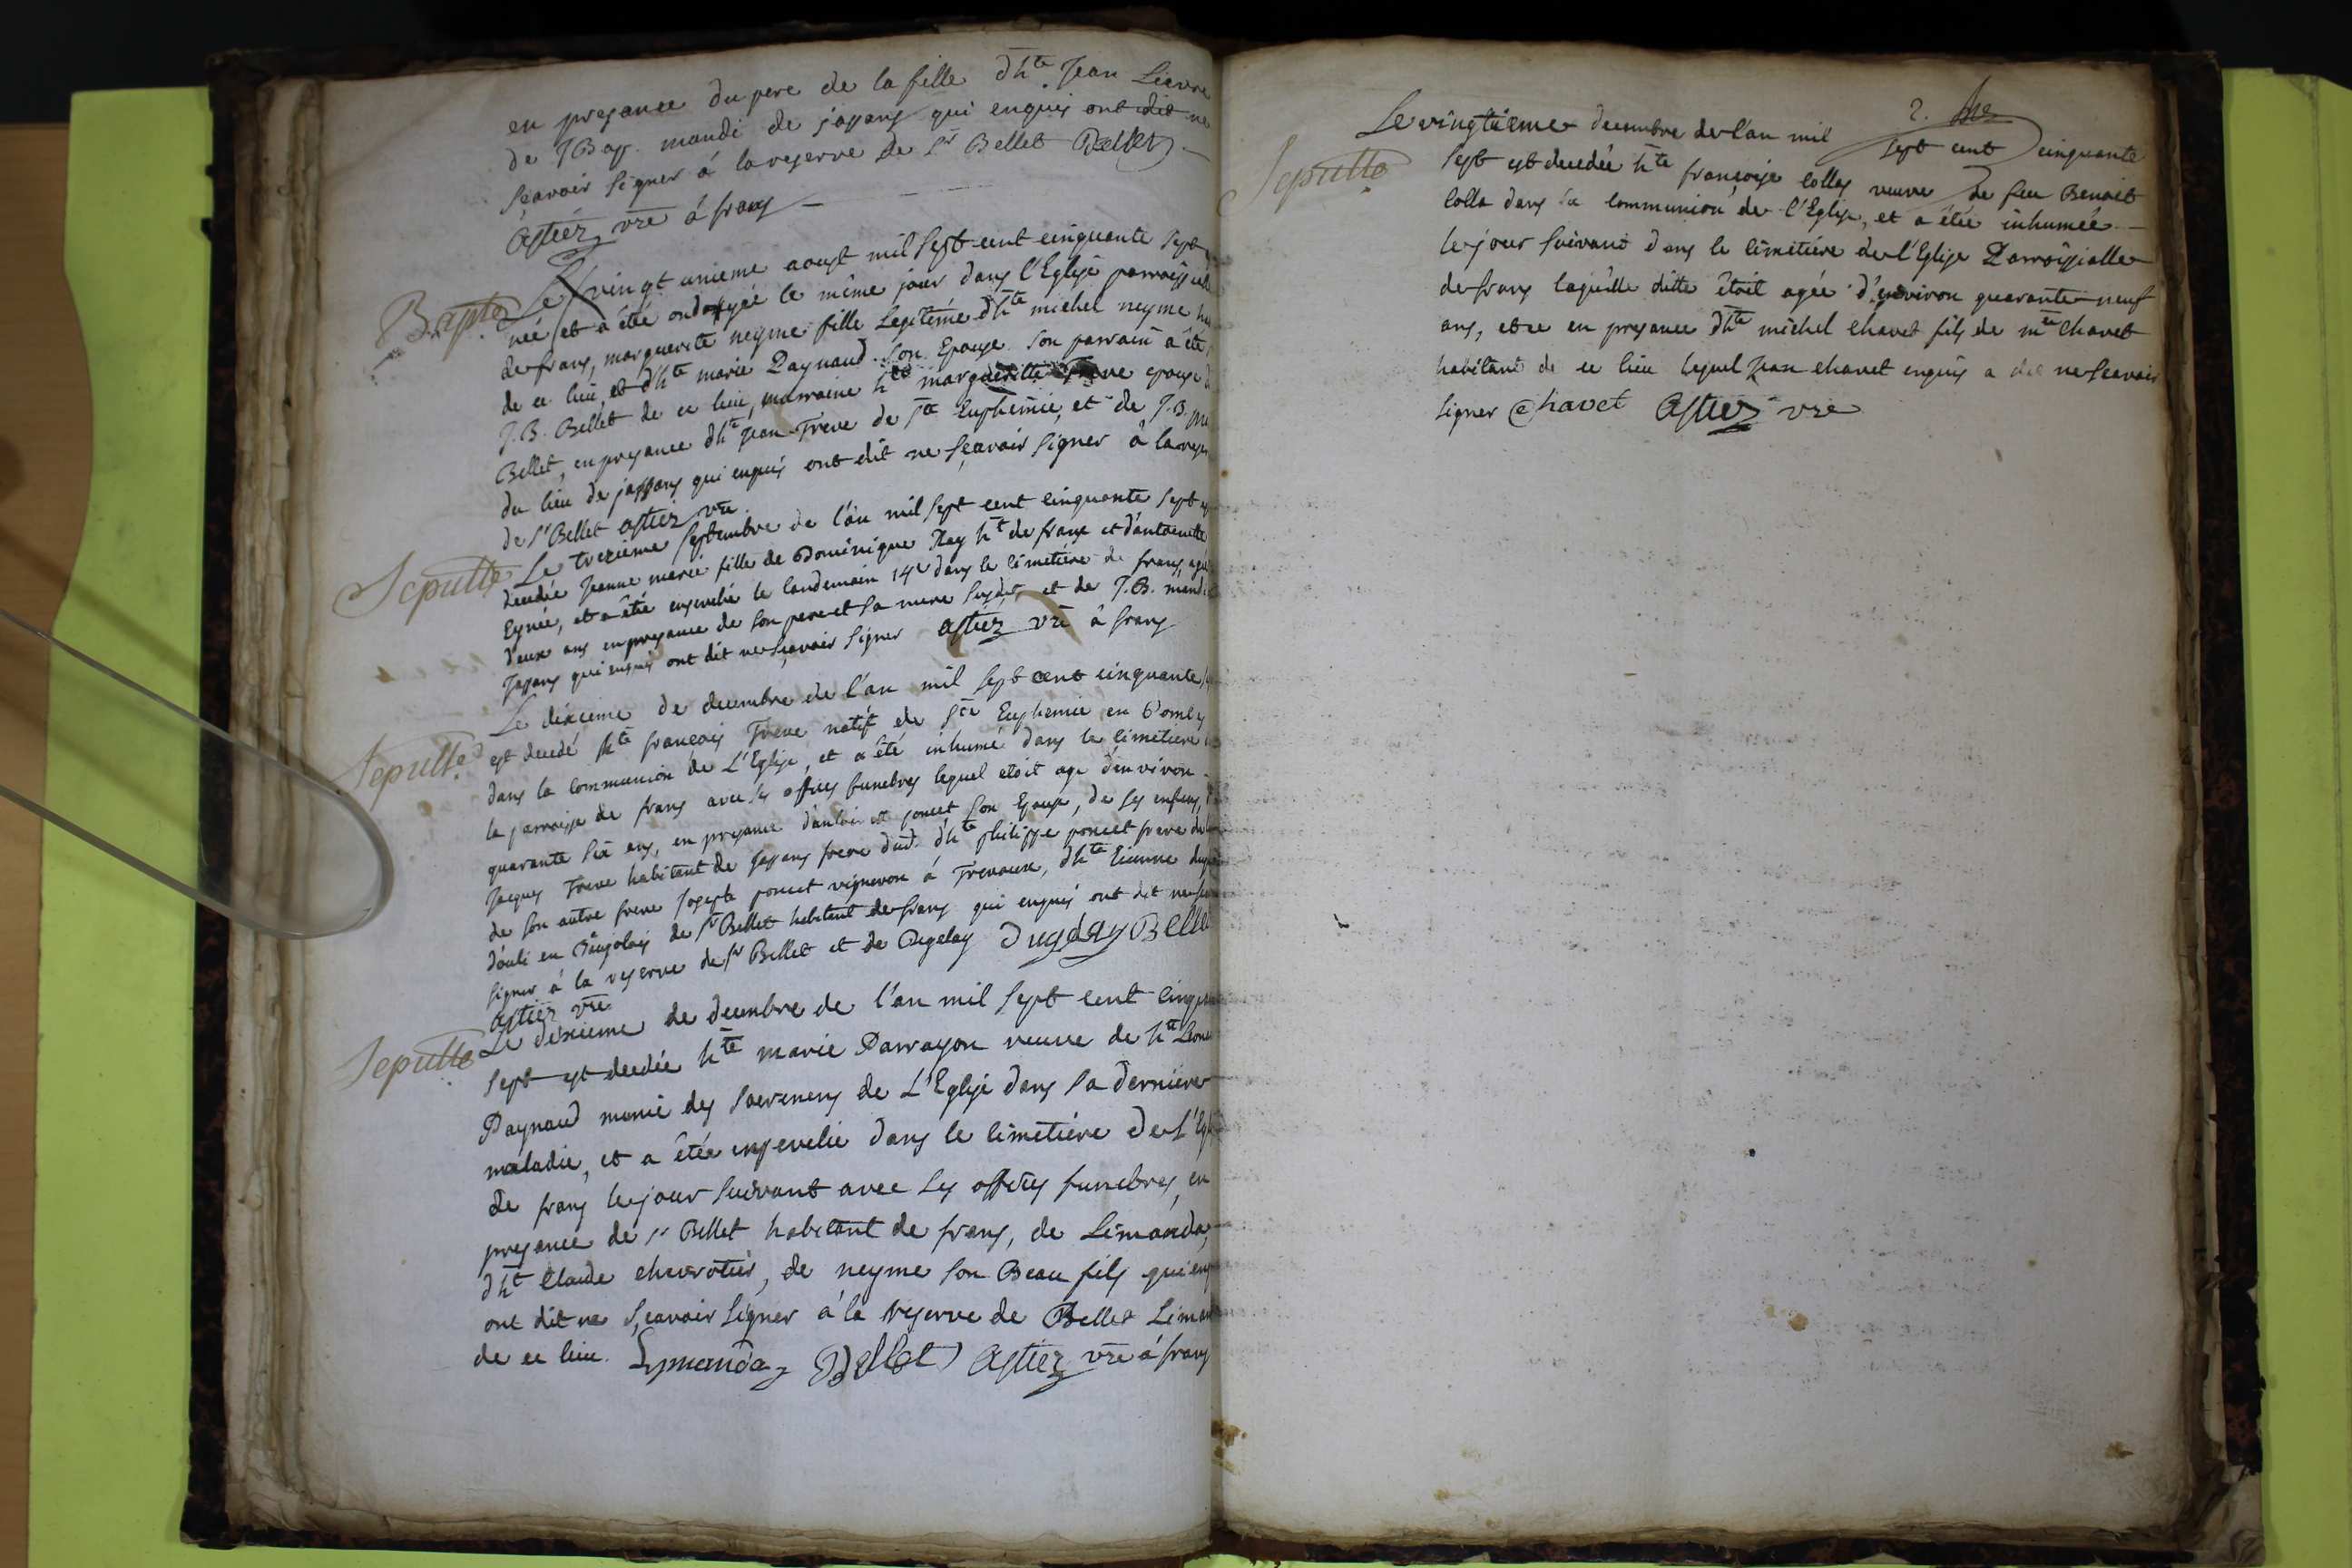 en presance du pere de la fille dhte Jean Lievre
de JBap. mandi de jassans qui enquis ont dit ne
scavoir signer á la reserve de Sr Bellet Bellet
Astier vre á frans
Bapte Le vingt unieme aoust mil sept cent cinquante sept
née et a êté ondoyée le même jour dans l'Eglise parroissialle
de frans, marguerite neyme fille Legitéme dhte michel neyme
de ce lieu, et dhte marie Paynaud son Epouse son parrain a êté
J.B. Bellet de ce lieu, marraine hte margueritte Treve epouse
Bellet, en presance dhte Jean Treve de Ste Euphemie, et de J.B.
du lieu de jassans qui enquis ont dit ne sçavoir signer â la
de Sr Bellet astier vre
Sepultte Le treizième septembre de l'an mil sept cent cinquante sept
decedée Jeanne marie fille de Dominique Rey ht de frans et d'antoinette
Eynée, et a êtée ensevelie le landemain 14e dans le cimetiere de frans, agée
deux ans en presance de son pere et sa mere susdts et de J.B. mandi
Jassans qui enquis ont dit ne sçavoir signer astier vre â frans
Sepultte Le dixieme de decembre de l'an mil sept cent cinquante
est decedé hte francois Treve natif de Ste Euphemie en Dombes
dans la communion de L'Eglise, et a êté inhumé dans le cimetiere
la parroisse de frans avec les offices funebres lequel etoit agé d'environ
quarante six ans, en presance d'antoinette poncet son Epouse, de ses enfans,
Jacques Treve habitant de Jassans frere dud. dhte philippe poncet frere de
de son autre frere Joseph poncet vigneron á Trevoux, dhte Etienne
d'ouli en Baujolais de Sr Bellet habitant de frans qui enquis ont dit
signer á la reserve de Sr Bellet et de Dugelay Dugelay Bellet
astier vre
Sepultte Le dixieme de decembre de l'an mil sept cent
sept est decedée hte marie Darrayon veuve de ht
Paynaud munie des sacremens de L'Eglise dans sa derniere
maladie, et a êtée ensevelie dans le cimetiére de l'
de frans le jour suivant avec les offices funebres, en
presance de Sr Bellet habitant de frans, de Limandas
dht Claude cheverotier, de neyme son Beau fils qui
ont dit ne sçavoir signer á la reserve de Bellet
de ce lieu. Lymandas Bellet Astier vre á frans
2. 
Sepultte Le vingtieme decembre de l'an mil sept cent cinquante
sept est decedée hte françoise collas veuve de feu Benoit
colla dans la communion de l'Eglise, et a êtée inhumée
le jour suivant dans le cimetiére de l'Eglise Parroissialle
de frans laquelle ditte étoit agée d'environ quarante neuf
ans, et ce en presance dhte michel chavet fils de me chavet
habitant de ce lieu lequel Jean chavet enquis a dit ne scavoir
signer Chavet Astier vre